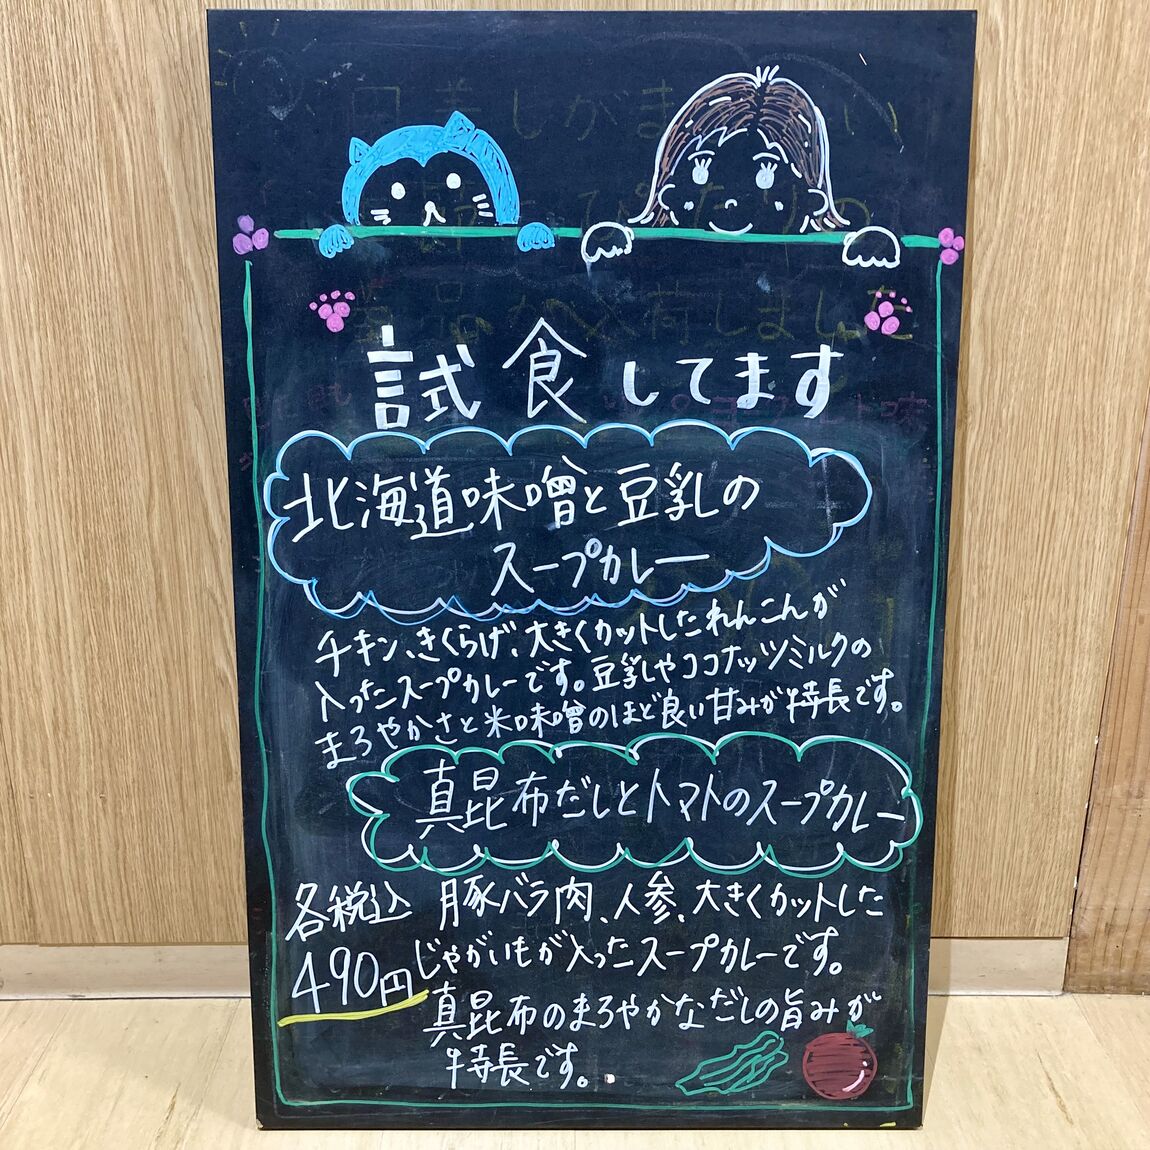 試食してます
北海道味噌と豆乳の
スープカレー
チキン、きくらげ、大きくカットしたれんこんが
入ったスープカレーです。豆乳やココナッツミルクの
まろやかさと米味噌のほど良い甘みが特長です。
真昆布だしとトマトのスープカレー
各税込
490円
豚バラ肉、人参、大きくカットした
じゃがいもが入ったスープカレーです。
真昆布のまろやかなだしの旨みが
特長です。